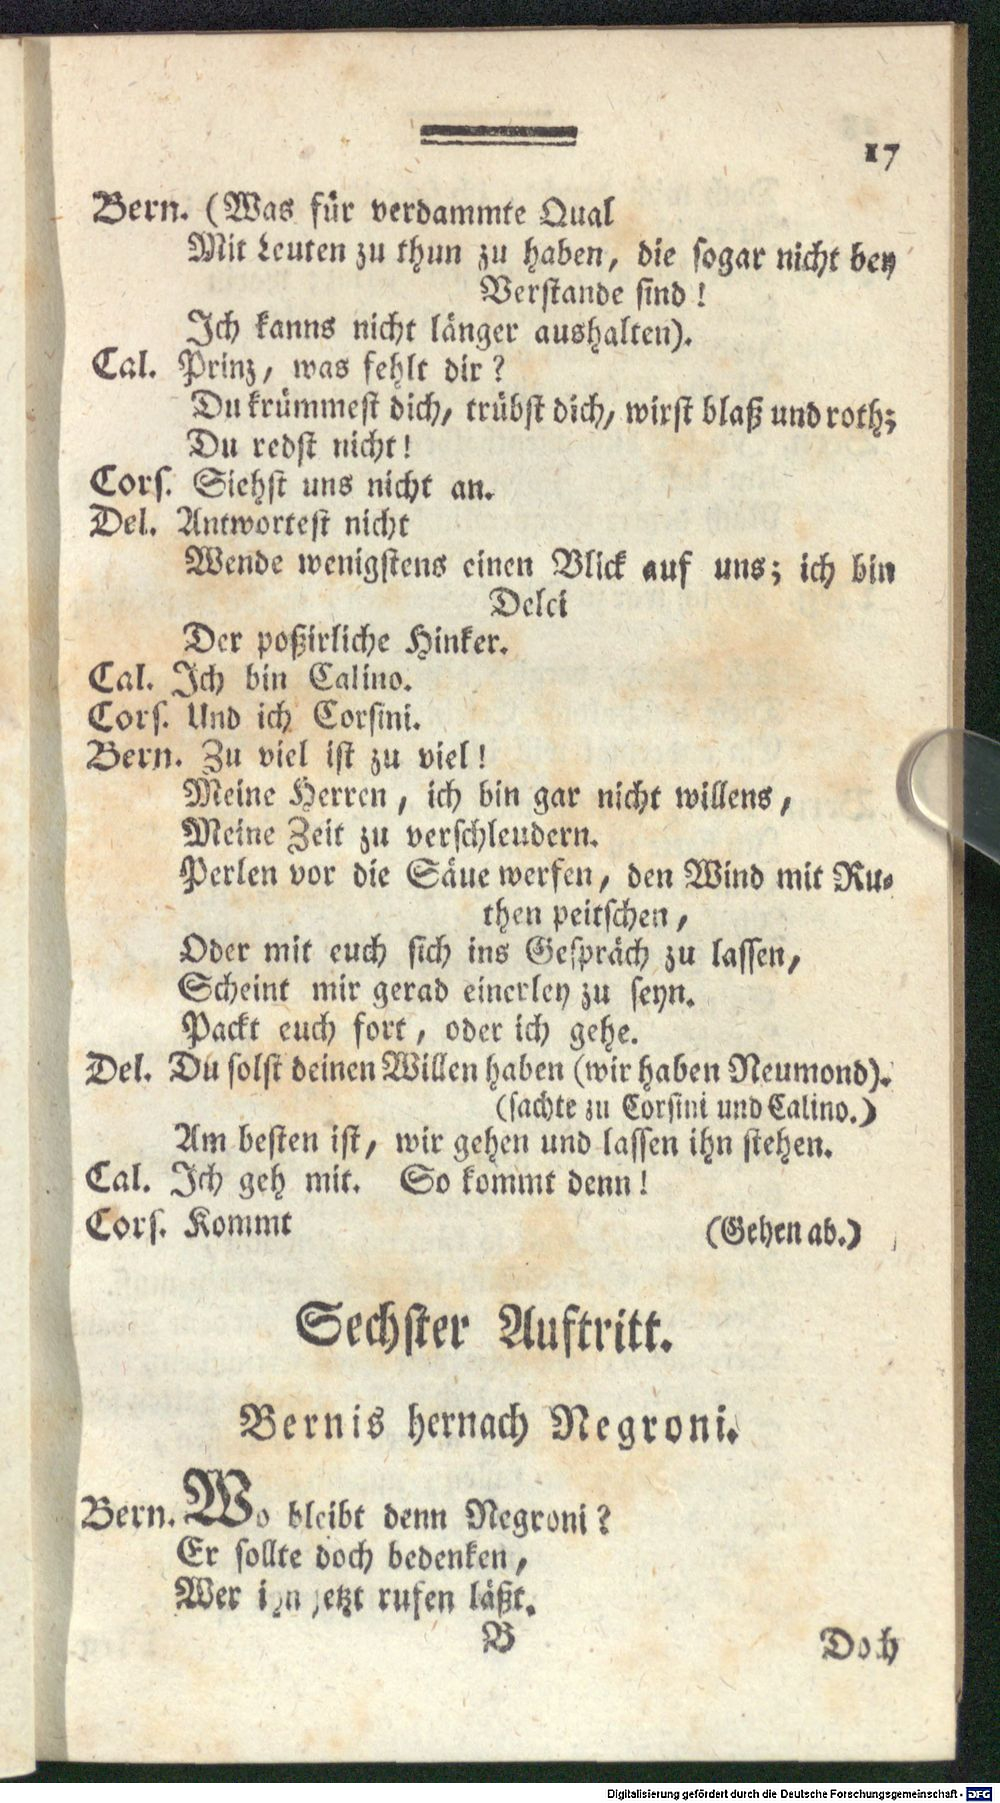 17
Bern. (Was für verdammte Qual
Mit Leuten zu thun zu haben, die sogar nicht bey
Verstande sind!
Ich kanns nicht länger aushalten).
Cal. Prinz, was fehlt dir?
Du krümmest dich, trübst dich, wirst blaß und roth;
Du redst nicht!
Cors. Siehst uns nicht an.
Del. Antwortest nicht
Wende wenigstens einen Blick auf uns; ich bin
Delci
Der poßirliche Hinker.
Cal. Ich bin Calino.
Cors. Und ich Corsini.
Bern. Zu viel ist zu viel!
Meine Herren, ich bin gar nicht willens,
Meine Zeit zu verschleudern.
Perlen vor die Säue werfen, den Wind mit Ru-
then peitschen,
Oder mit euch sich ins Gespräch zu lassen,
Scheint mir gerad einerley zu seyn.
Packt euch fort, oder ich gehe.
Del. Du solst deinen Willen haben (wir haben Neumond).
(sachte zu Corsini und Calino.)
Am besten ist, wir gehen und lassen ihn stehen.
Cal. Ich geh mit. So kommt denn!
Cors. Kommt (Gehen ab.)
Sechster Auftritt.
Bernis hernach Negroni.
Bern. Wo bleibt denn Negroni?
Er sollte doch bedenken,
Wer ihn jetzt rufen läßt.
B Doch
Digitalisierung gefördert durch die Deutsche Forschungsgemeinschaft - DFG